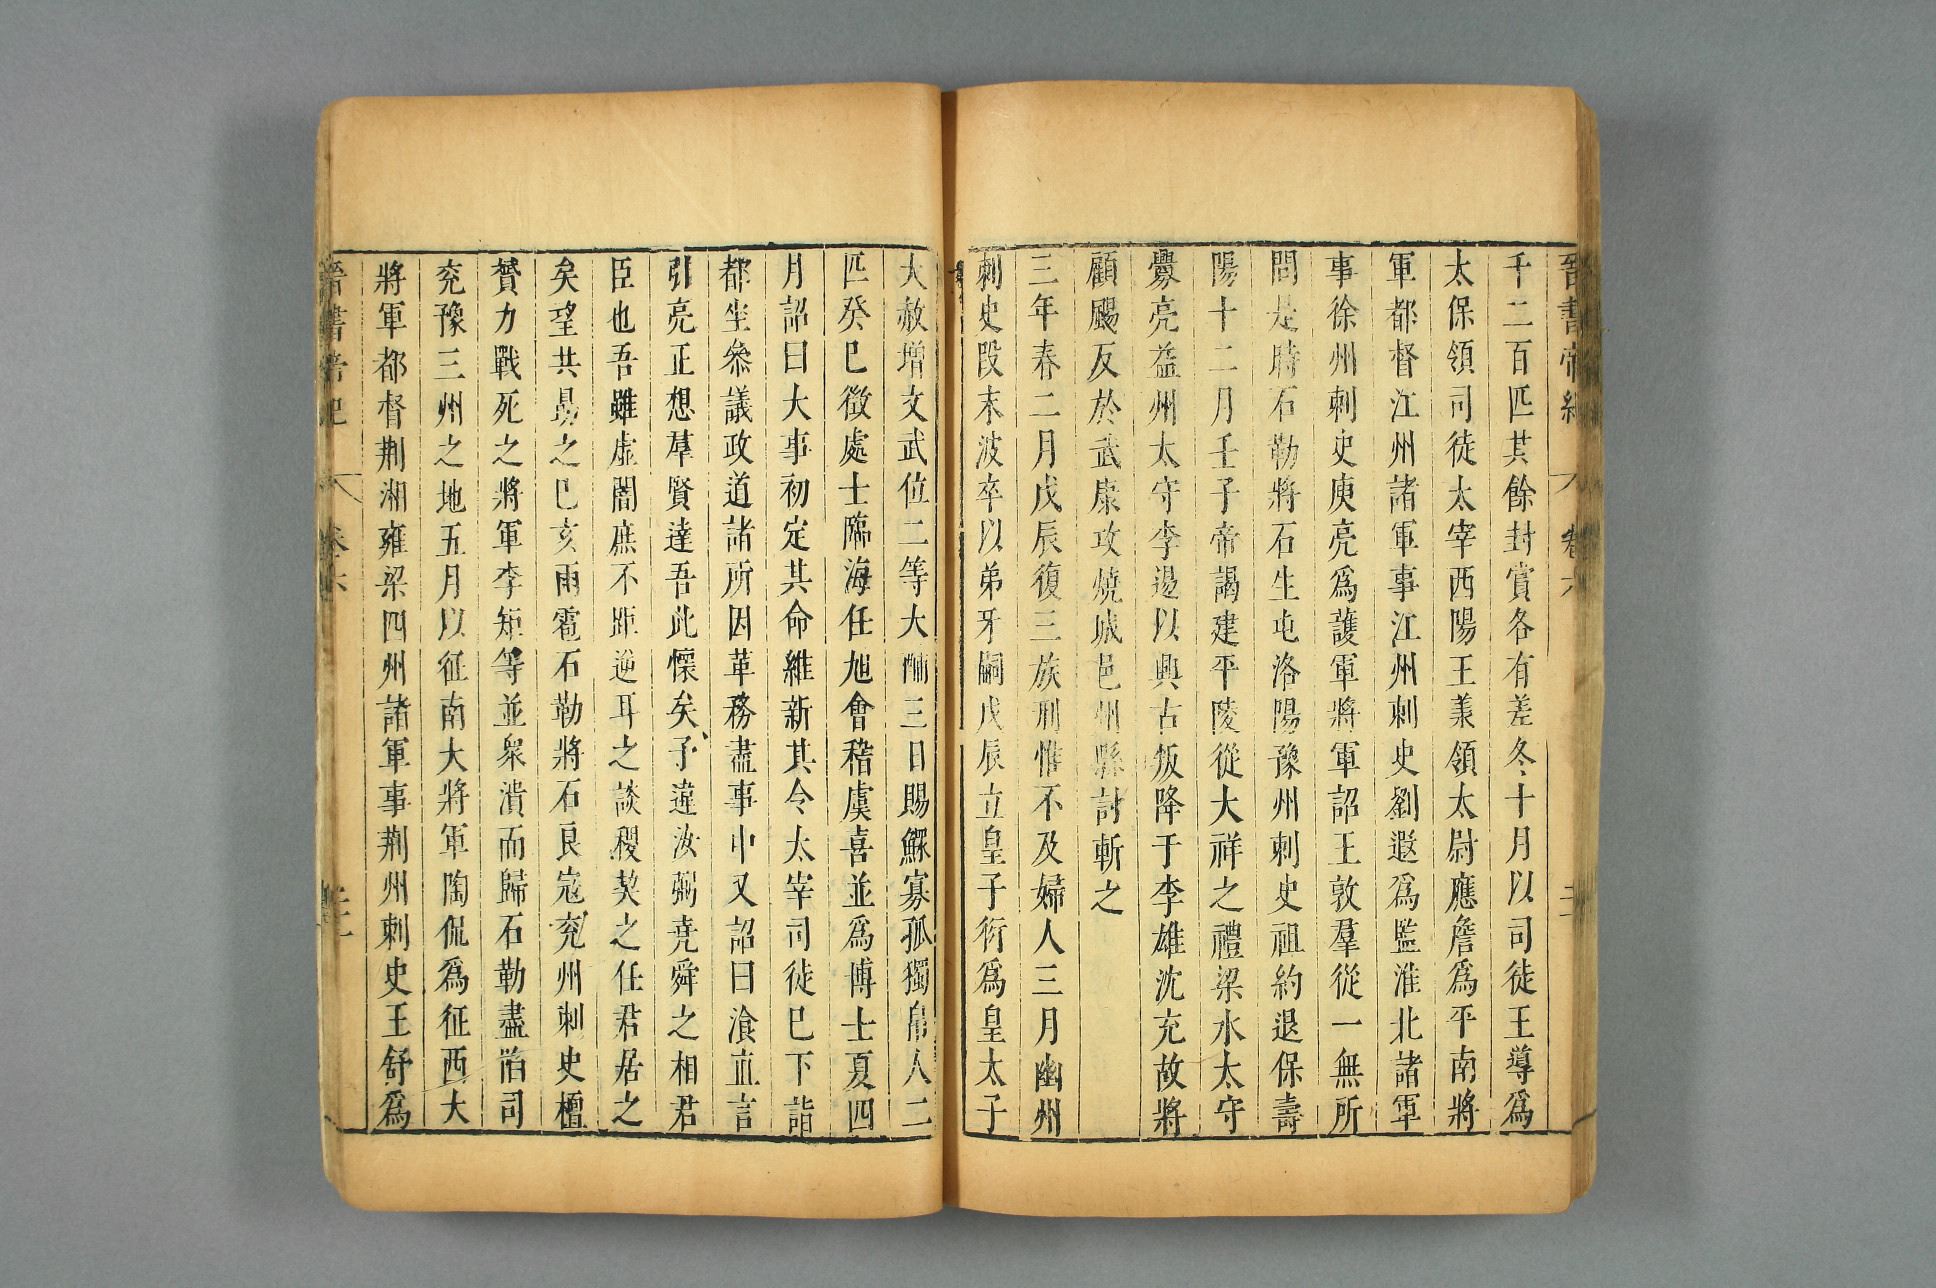 晉書帝紀 卷六
千二百匹其餘封賞各有差冬十月以司徒王導爲
太保領司徒太宰西陽王羕領太尉應詹爲平南將
軍都督江州諸軍事江州刺史劉遐爲監淮北諸軍
事徐州刺史庾亮爲護軍將軍詔王敦羣從一無所
問是時石勒將石生屯洛陽豫州刺史祖約退保壽
陽十二月壬子帝謁建平陵從大祥之禮梁水太守
爨亮益州太守李逷以興古叛降于李雄沈充故將
顧颺反於武康攻燒城邑州縣討斬之
三年春二月戊辰復三族刑惟不及婦人三月幽州
刺史段末波卒以弟牙嗣戊辰立皇子衍爲皇太子
大赦增文武位二等大酺三日賜鰥寡孤獨帛人二
匹癸巳徵處士臨海任旭會稽虞喜並爲博士夏四
月詔曰大事初定其命維新其令太宰司徒巳下詣
都坐叅議政道諸所因革務盡事中又詔曰飡直言
引亮正想羣賢達吾此懷矣予違汝弼堯舜之相君
臣也吾雖虛闇庶不距逆耳之談稷契之任君居之
矣望共勗之巳亥雨雹石勒將石良寇兗州刺史檀
贇力戰死之將軍李矩等並衆潰而歸石勒盡䧟司
兗豫三州之地五月以征南大將軍陶侃爲征西大
將軍都督荆湘雍梁四州諸軍事荆州刺史王舒爲
晉書帝紀 卷六